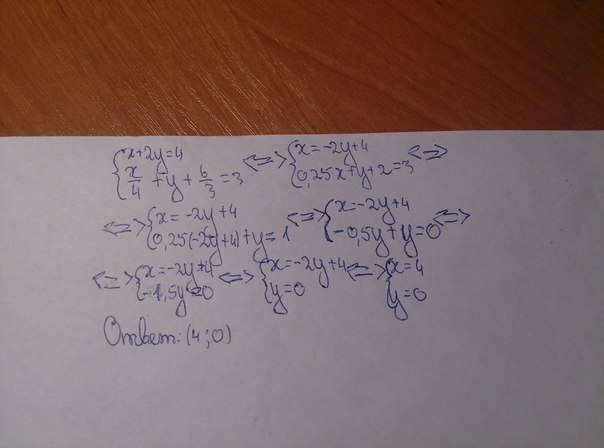 {x+2y=4
{x/4 + y + 6/3 = 3 <=> {x=-2y+4
{0,25x+y+2=3 <=>
<=> {x=-2y+4
{0,25(-2y+4)+y=1 <=> {x=-2y+4
{-0,5y+y=0 <=>
<=> {x=-2y+4
{-1,5y=0 <=> {x=-2y+4
{y=0 <=> {x=4
{y=0
Ответ: (4;0)